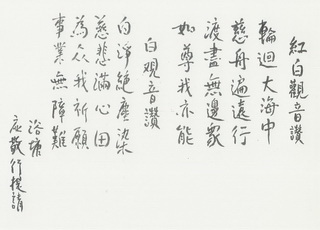 紅白觀音讚
輪迴大海中
慈舟遍遠行
渡盡無邊眾
如尊我亦能
白观音讚
白淨絕塵染
慈悲滿心田
為众我祈願
事業無障難
應敬行提請